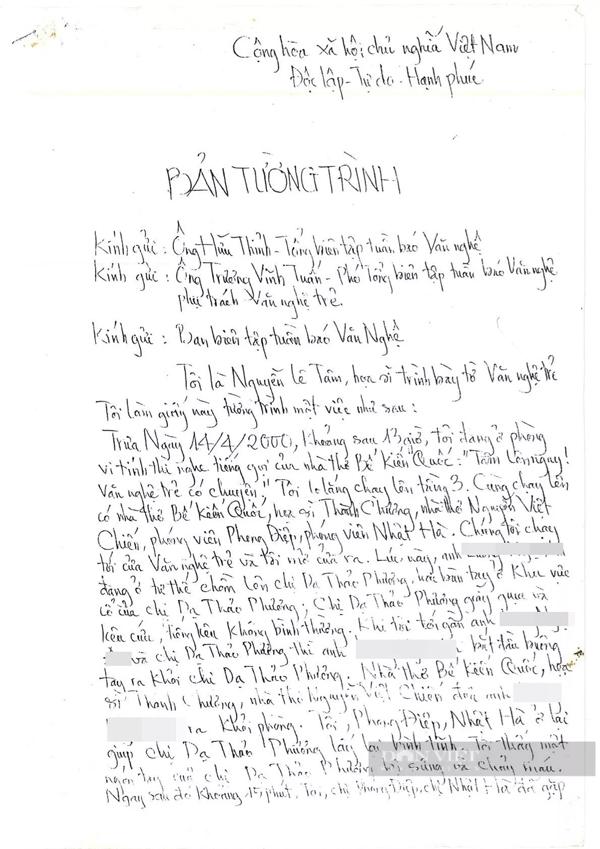 Cộng hòa xã hội chủ nghĩa Việt Nam
Độc lập - Tự do - Hạnh phúc
BẢN TƯỜNG TRÌNH
Kính gửi : Ông Hữu Thỉnh - Tổng biên tập tuần báo Văn nghệ
Kính gửi : Ông Trương Vĩnh Tuấn - Phó Tổng biên tập tuần báo Văn nghệ
phụ trách Văn nghệ trẻ.
Kính gửi : Ban biên tập tuần báo Văn Nghệ
Tôi là Nguyễn Lê Tâm, họa sĩ trình bày tờ Văn nghệ trẻ
Tôi làm giấy này tường trình một việc như sau :
Trưa Ngày 14/4/2000, khoảng sau 13 giờ, tôi đang ở phòng
vi tính thì nghe tiếng gọi của nhà thơ Bế Kiến Quốc : "Tâm lên ngay!
Văn nghệ trẻ có chuyện." Tôi lo lắng chạy lên tầng 3. Cùng chạy lên
có nhà thơ Bế Kiến Quốc, họa sĩ Thành Chương, nhà thơ Nguyễn Việt
Chiến, phóng viên Phong Điệp, phóng viên Nhật Hà. Chúng tôi chạy
tới cửa Văn nghệ trẻ và tôi mở cửa ra. Lúc này, anh
đang ở tư thế chồm lên chị Dạ Thảo Phương, hai bàn tay ở khu vực
cổ của chị Dạ Thảo Phương; Chị Dạ Thảo Phương giãy giụa và
kêu cứu, tiếng kêu không bình thường. Khi tôi tới gần anh
và chị Dạ Thảo Phương thì anh bắt đầu buông
tay ra khỏi chị Dạ Thảo Phương. Nhà thơ Bế Kiến Quốc, họa
sĩ Thành Chương, nhà thơ Nguyễn Việt Chiến đưa anh
ra khỏi phòng. Tôi, Phong Điệp, Nhật Hà ở lại
giúp chị Dạ Thảo Phương lấy lại bình tĩnh. Tôi thấy một
ngón tay của chị Dạ Thảo Phương bị sưng và chảy máu.
Ngay sau đó khoảng 15 phút, Tôi, chị Phong Điệp, chị Nhật Hà đã gặp
DÂN VIỆT